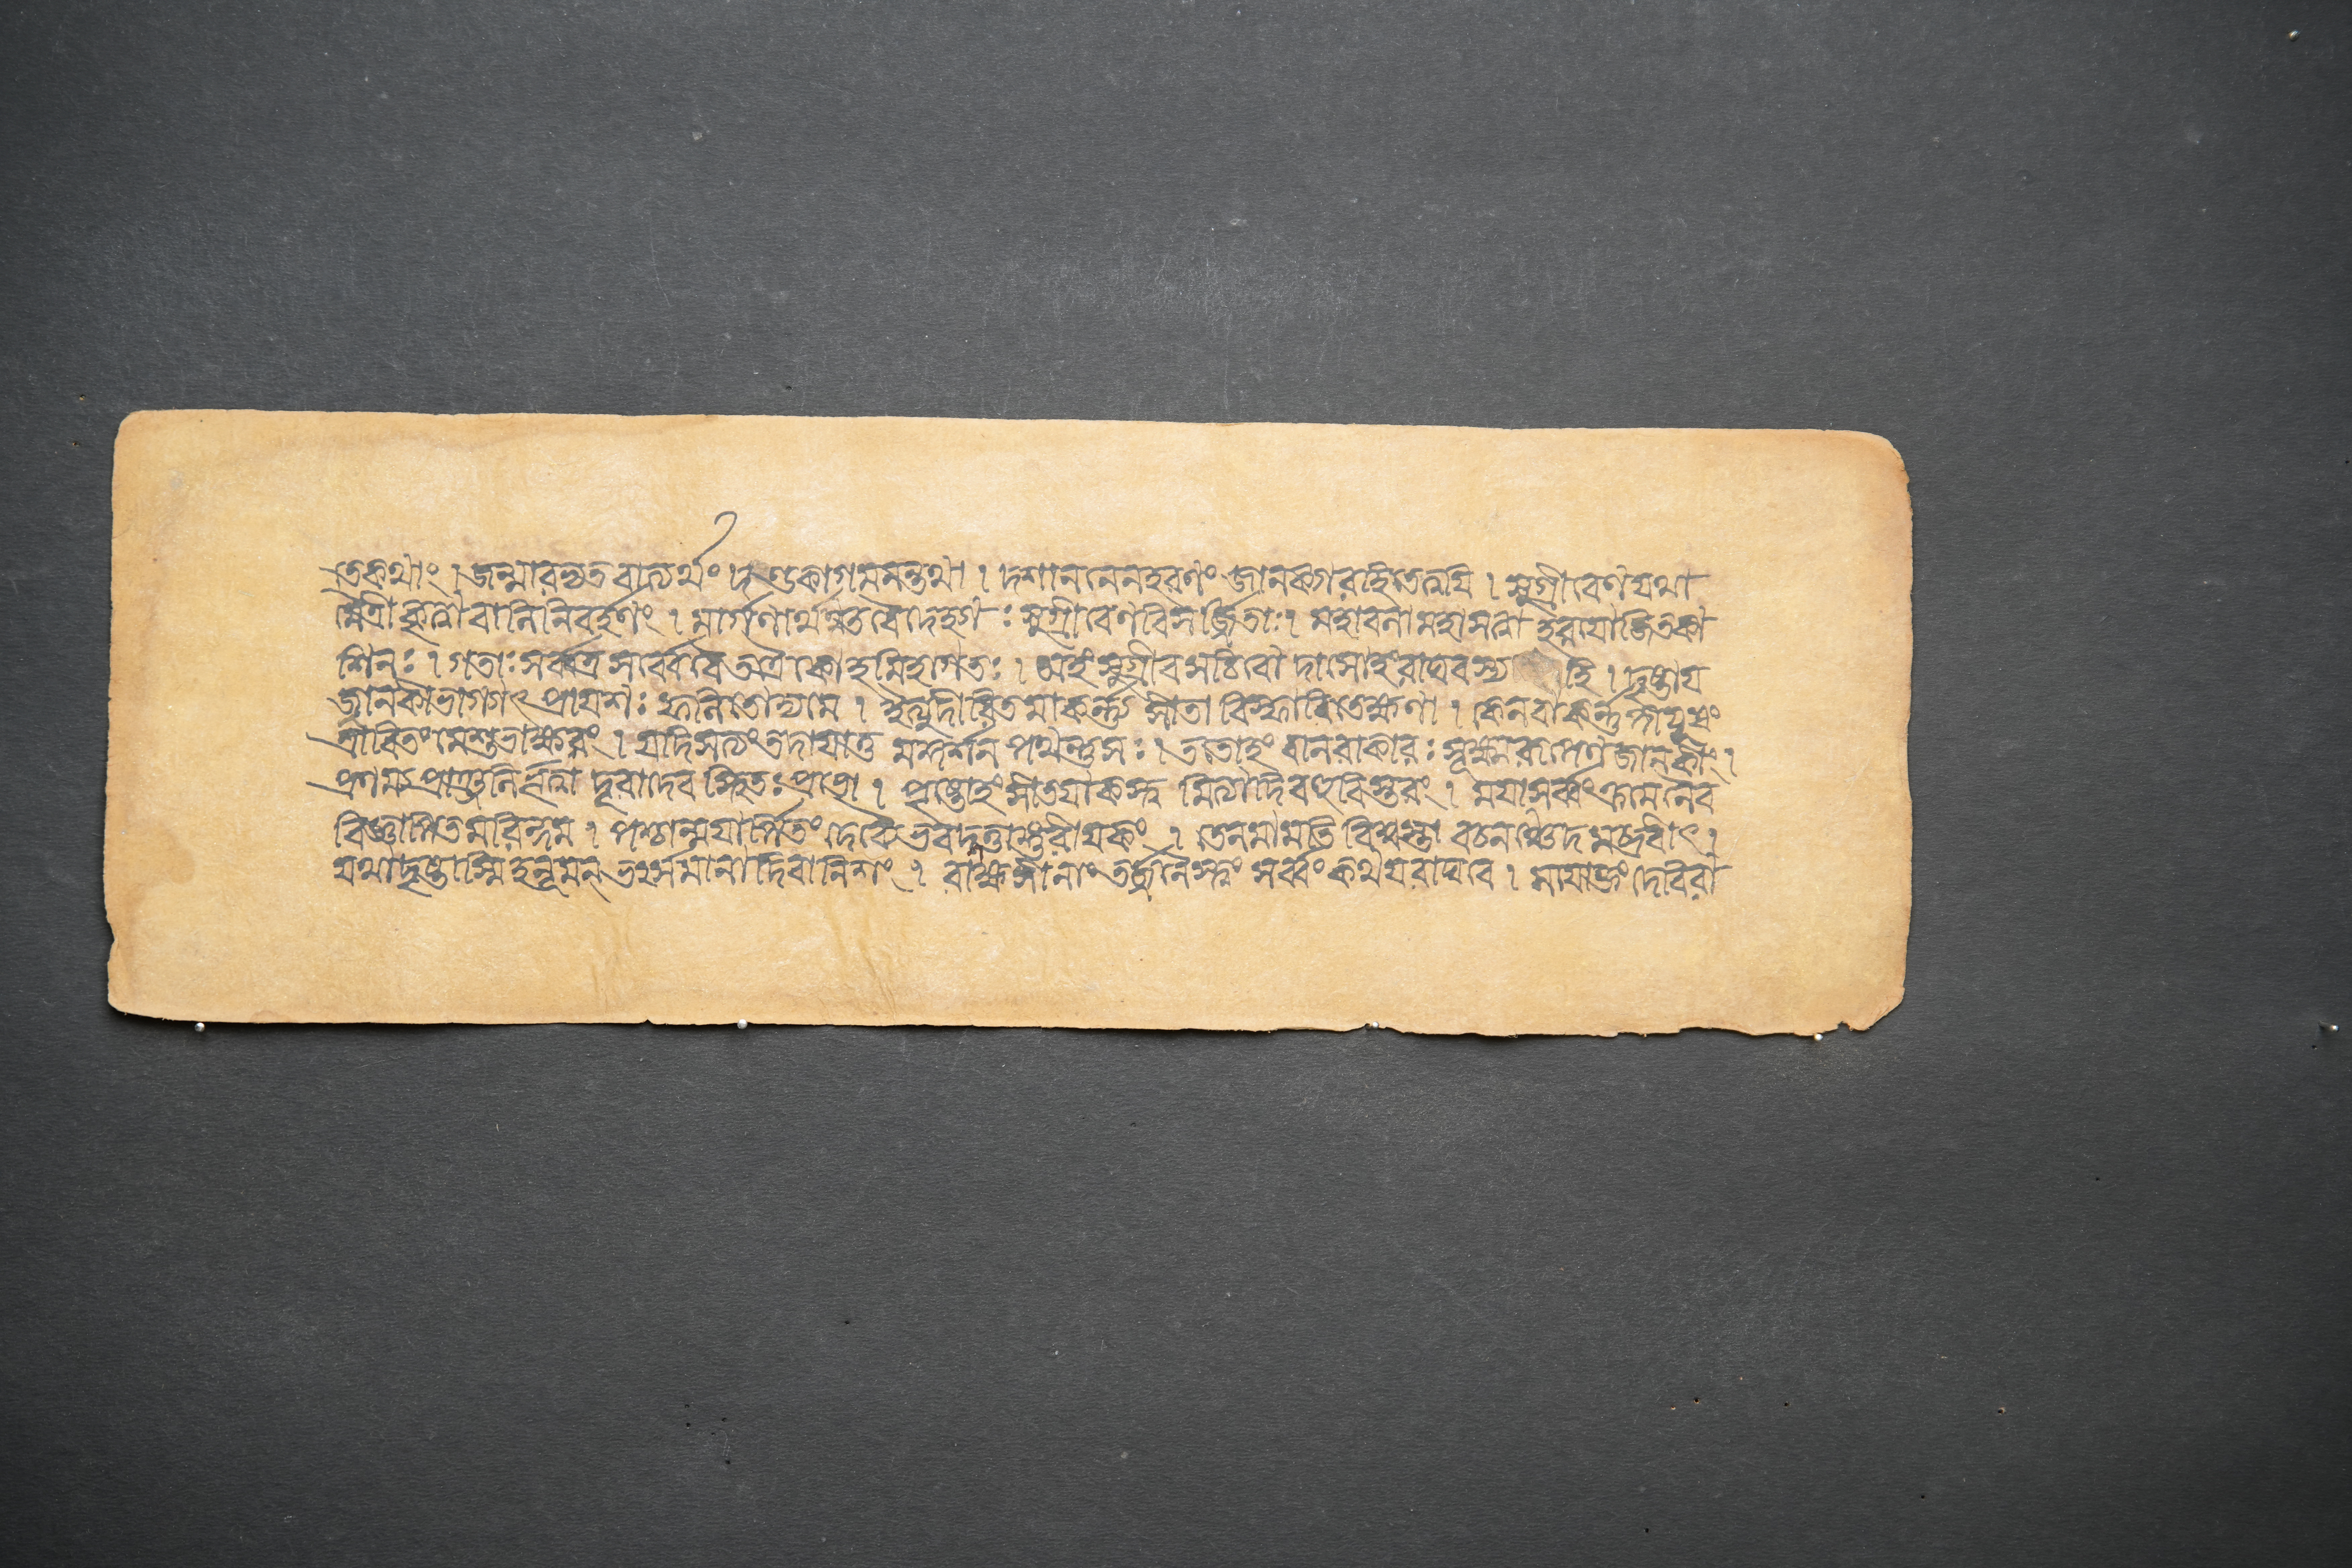 ত্কথাং । জন্মারভ্য তবাত্যর্থং দণ্ডকাগমনন্তথা । দশাননেন হরণং জানক্যা রহিতে ত্বয়ি । সুগ্রীবেণ যথা
মৈত্রী কৃত্বা বালিনিবর্হণং । মার্গণার্থঞ্চ বৈদেহ্যাঃ সুগ্রীবেণ বিসর্জ্জিতাঃ । মহাবলা মহাসত্বা হরয়ো জিতকা
শিনঃ । গতাঃ সর্ব্বত্র সর্ব্বে বৈ তত্রৈকোহমিহাগতঃ । অহং সুগ্রীবসচিবো দাসোহং রাঘবস্য হি । দৃষ্টা য
জ্জানকী ভাগ্যাৎ প্রায়শঃ ফলিতোদ্য মে । ইত্যুদীরিতমাকর্ন্ন্য সীতা বিস্ফারিতেক্ষণা । কেন বা কর্ন্নপীয়ূষং
শ্রাবিতং মে শুভাক্ষরং । যদি সত্যং তদায়াতু মদ্দর্শনপথন্তু সঃ । ততোহং বানরাকারঃ সূক্ষ্মরূপেণ জানকীং ।
প্রণম্য প্রাঞ্জলির্ভূত্বা দূরাদেব স্থিতঃ প্রভো । পৃষ্টোহং সীতয়া কস্ত্বমিত্যাদি বহুবিস্তরং । ময়া সর্ব্বং ক্রমেনৈব
বিজ্ঞাপিতমরিন্দম । পশ্চান্ময়ার্পিতং দেব্যৈ ভবদ্দত্তাঙ্গুরীয়কং । তেন মামতি বিশ্বস্তা বচনঞ্চেদমব্রবীৎ ।
যথা দৃষ্টাস্মি হনূমন্ ভর্ৎসমানা দিবানিশং । রাক্ষসীনাং তর্জ্জনৈস্তং সর্ব্বং কথয় রাঘবে । ময়োক্তং দেবি রা